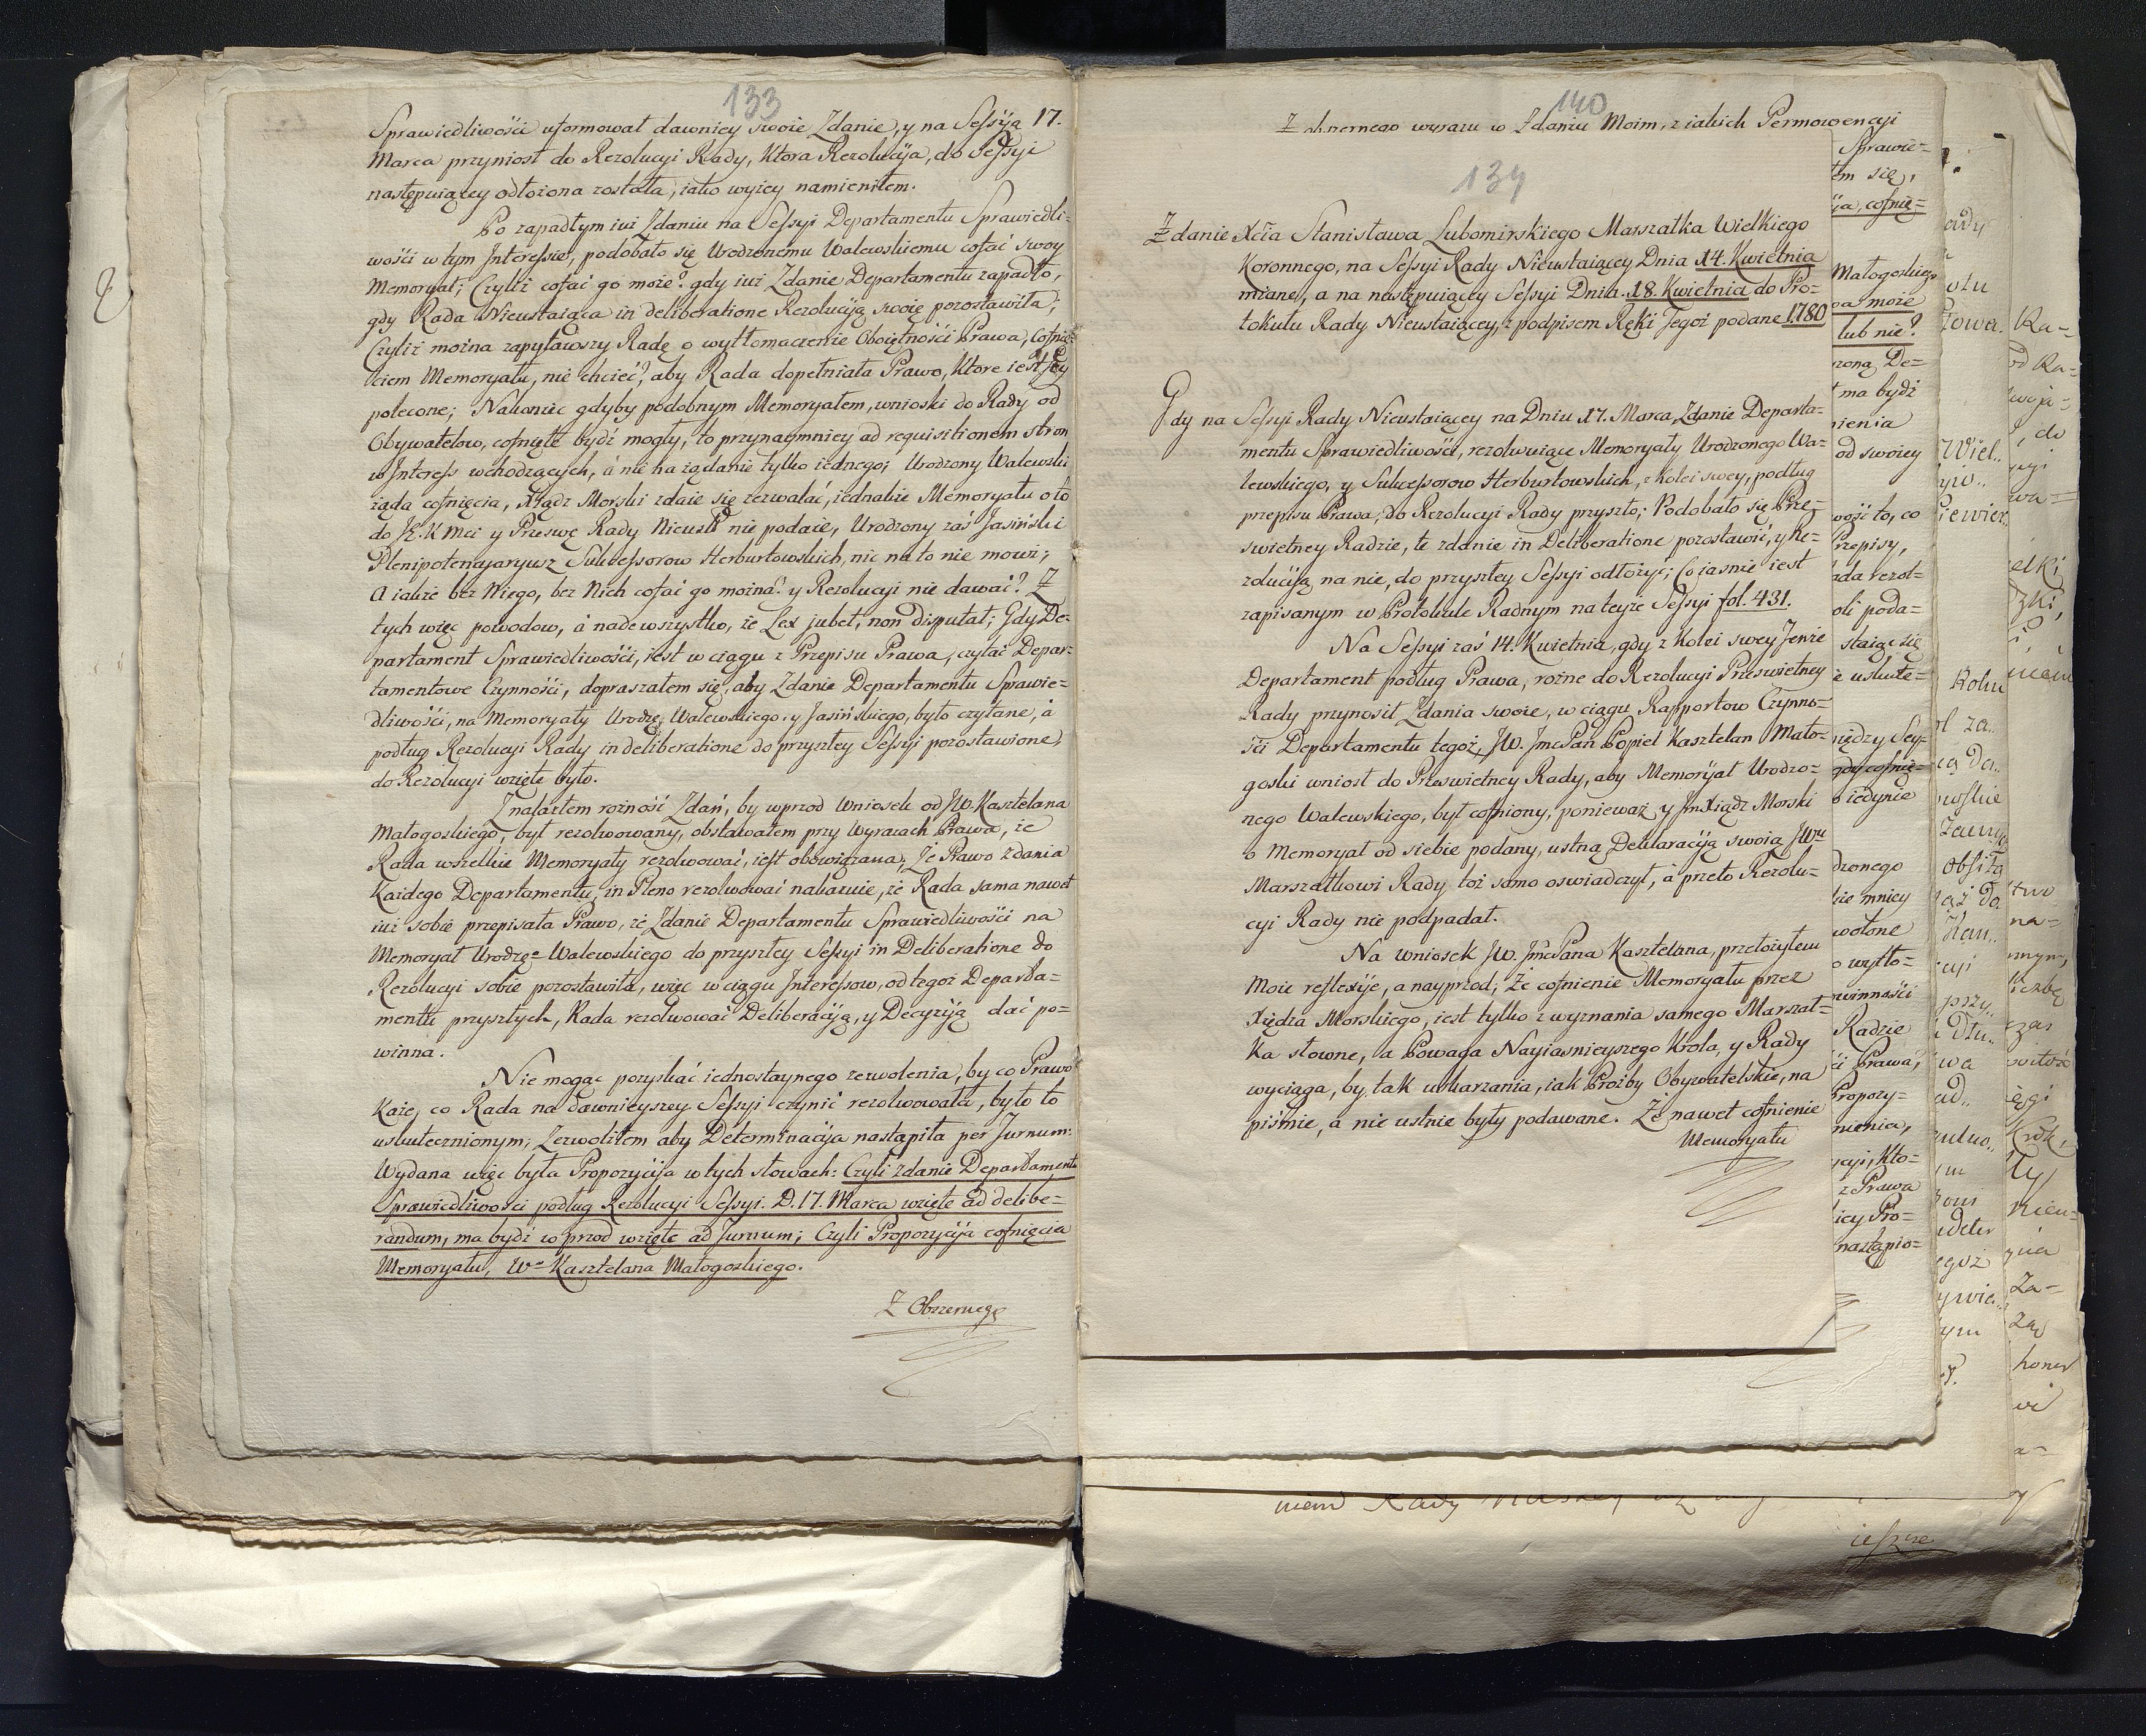 133
Sprawiedliwości uformował dawniey swoie Zdanie, y na Sessyją 17.
Marca przyniosł do Rezolucyi Rady, Ktora Rezolucyja, do Sessyi
następuiącey odłożona została, iako wyżey namieniłem.
Po zapadłym iuż Zdaniu na Sessyi Departamentu Sprawiedli-
wości w tym Interessie, podobało się Urodzonemu Walewskiemu cofać swoy
Memoryał; Czyliż cofać go może? gdy iuż Zdanie Departamentu zapadło,
gdy Rada Nieustaiąca in deliberatione Rezolucyją swoię pozostawiła;
Czyliż można zapytawszy Radę o wytłomaczenie Oboiętności Prawa, Cofnię-
ciem Memoryału, nie chcieć, aby Rada dopełniała Prawo, Ktore iest Jey
polecone; Nakoniec gdyby podobnym Memoryałem, wnioski do Rady od
Obywatelow, cofnięte bydź mogły, to przynaymniey ad requisitionem stron
w Interess wchodzących, á nie na żądanie tylko iednego; Urodzony Walewski
żąda cofnięcia, Xiądz Morski zdaie się zezwalać, iednakże Memoryału o to
do JK. Mci y Prześwę Rady Nieust nie podaie, Urodzony zaś Jasiński
Plenipotencyaryusz Sukcessorow Herburtowskich, nic na to nie mowi;
A iakże bez Niego, bez Nich cofać go można? y Rezolucyi nie dawać? Z
tych więc powodow, á nadewszystko, że Lex jubet, non disputat; Gdy De-
partament Sprawiedliwości, iest w ciągu z Przepisu Prawa, czytać Depar-
tamentowe Czynności, dopraszałem się, aby Zdanie Departamentu Sprawie-
dliwości, na Memoryały Urodzę Walewskiego y Jasińskiego, było czytane, á
podług Rezolucyi Rady in deliberatione do przyszłey Sessyi pozostawione,
do Rezolucyi wzięte było.
Znalazłem rożność Zdań, by wprzod Wniosek od JW. Kasztelana
Małogoskiego, był rezolwowany, obstawałem przy Wyrazach Prawa, że
Rada wszelkie Memoryały rezolwować, iest obowiązana; Że Prawo zdania
Każdego Departamentu, in Pleno rezolwować nakazuie, że Rada sama nawet
iuż sobie przepisała Prawo, że Zdanie Departamentu Sprawiedliwości na
Memoryał Urodzęo Walewskiego do przyszłey Sessyi in Deliberatione do
Rezolucyi sobie pozostawiła, więc w ciągu Interessow, od tegoż Departa-
mentu przyszłych, Rada rezolwować Deliberacyją, y Decyzyją dać po-
winna.
Nie mogąc pozyskać iednostaynego zezwolenia, by co Prawo
Każe, co Rada na dawnieyszey Sessyi czynić rezolwowała, było to
uskutecznionym; Zezwoliłem aby Determinacyja nastąpiła per Turnum:
Wydana więc była Propozycyja w tych słowach: Czyli zdanie Departamentu
Sprawiedliwości podług Rezolucyi Sessyi. D. 17. Marca wzięte ad delibe-
randum, ma bydź wprzod wzięte ad Turnum; Czyli Propozycyja cofnięcia
Memoryału, Wo Kasztelana Małogoskiego.
Z Obszernego
140
Z obszernego wyrazu w Zdaniu Moim, z iakich Permowencyi
134
Zdanie Xcia Stanisława Lubomirskiego Marszałka Wielkiego
Koronnego, na Sessyi Rady Nieustaiącey Dnia 14. Kwietnia
miane, a na następuiącey Sessyi Dnia. 18. Kwietnia do Pro-
tokułu Rady Nieustaiącey, z podpisem Ręki Jegoż podane 1780
Gdy na Sessyi Rady Nieustaiącey na Dniu 17. Marca, Zdanie Departa-
mentu Sprawiedliwości, rezolwuiące Memoryały Urodzonego Wa-
lewskiego, y Sukcessorow Herburtowskich, z kolei swey, podług
przepisu Prawa, do Rezolucyi Rady przyszło; Podobało się Prze-
swietney Radzie, te zdanie in Deliberatione pozostawić, y Re-
zolucyją na nie, do przyszłey Sessyi odłożyć; Co iasnie iest
zapisanym w Protokule Radnym na teyże Sessyi fol. 431.
Na Sessyi zaś 14. Kwietnia, gdy z kolei swey Tenże
Departament podług Prawa, rożne do Rezolucyi Prześwietney
Rady przynosił Zdania swoie, w ciągu Rapportow Czynno-
ści Departamentu tegoż, JW. JmcPan Popiel Kasztelan Mało-
goski wniosł do Prześwietney Rady, aby Memoryał Urodzo-
nego Walewskiego, był cofniony, ponieważ y JmXiądz Morski
o Memoryał od siebie podany, ustną Deklaracyją swoią JWu
Marszałkowi Rady toż samo oswiadczył, á przeto Rezolu-
cyi Rady nie podpadał.
Na wniosek JW. JmcPana Kasztelana, przełożyłem
Moie reflexyje, a nayprzod; Że cofnienie Memoryału przez
Xiędza Morskiego, iest tylko z wyznania samego Marszał-
ka słowne, a Powaga Nayiasnieyszego Krola, y Rady
wyciąga, by tak uskarzania, iak Prozby Obywatelskie, na
piśmie, a nie ustnie były podawane. Że nawet cofnienie
Memoryału
Sprawie-
tem się,
cofnię-
Małogoskiego
może
lub nie?
De-
ma bydź
od swoiey
to, co
Przepisy,
poda-
staiąc się
Sey-
iedynie
mniey
wytło-
Radzie
Prawa,
Propozy-
Kto-
z Prawa
Pro-
nastąpio-
ieszcze